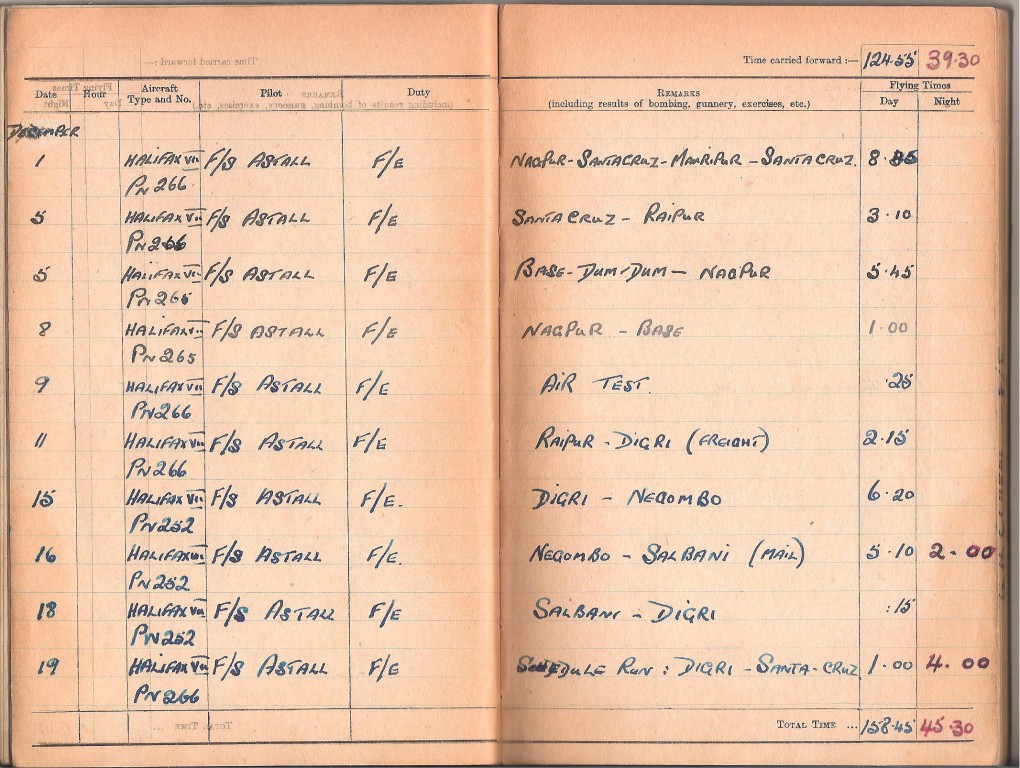 Time carried forward :— 124·55 39·30
Date Hour Aircraft Type and No. Pilot Duty REMARKS (including results of bombing, gunnery, exercises, etc.) Flying Times Day Night
DECEMBER
1 HALIFAX VII F/S ASTALL F/E NAGPUR - SANTACRUZ - MAURIPUR - SANTACRUZ.
PN 266
5 HALIFAX VII F/S ASTALL F/E SANTA CRUZ - RAIPUR 3·10
PN 266
5 HALIFAX VII F/S ASTALL F/E BASE - DUM-DUM - NAGPUR 5·45
PN 265
8 HALIFAX VII F/S ASTALL F/E NAGPUR - BASE 1·00
PN 265
9 HALIFAX VII F/S ASTALL F/E AIR TEST. ·25
PN 266
11 HALIFAX VII F/S ASTALL F/E RAIPUR - DIGRI (FREIGHT) 2·15
PN 266
15 HALIFAX VII F/S ASTALL F/E. DIGRI - NEGOMBO 6·20
PN 252
16 HALIFAX VII F/S ASTALL F/E. NEGOMBO - SALBANI (MAIL) 5·10 2·00
PN 252
18 HALIFAX VII F/S ASTALL F/E SALBANI - DIGRI ·15
PN 252
19 HALIFAX VII F/S ASTALL F/E SCHEDULE RUN : DIGRI - SANTA-CRUZ 1·00 4·00
PN 266
TOTAL TIME ... 158·45 45·30